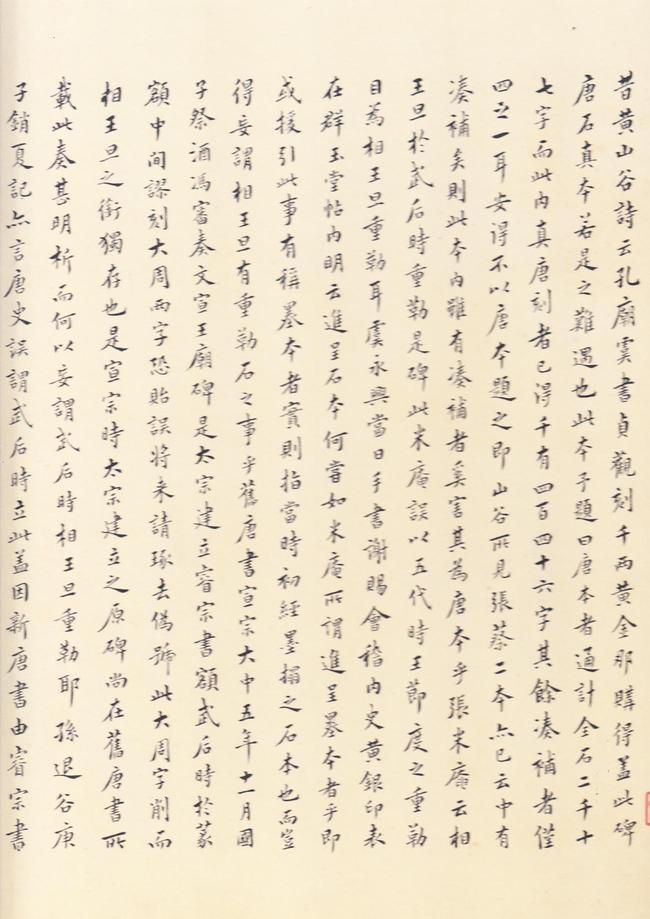 昔黃山谷詩云孔廟虞書貞觀刻千兩黃金那購得蓋此碑
唐石真本若是之難遇也此本予題曰唐本者通計全石二千十
七字而此內真唐刻者已得千有四百四十六字其餘湊補者僅
四之一耳安得不以唐本題之即山谷所見張蔡二本亦已云中有
湊補矣則此本內雖有湊補者奚害其為唐本乎張米庵云相
王旦於武后時重勒是碑此米庵誤以五代時王節度之重勒
目為相王旦重勒耳虞永興當日手書謝賜會稽內史黃銀印表
在群玉堂帖內明云進呈石本何嘗如米庵所謂進呈墨本者乎即
或援引此事有稱墨本者實則指當時初經墨搨之石本也而豈
得妄謂相王旦有重勒石之事乎舊唐書宣宗大中五年十一月國
子祭酒馮審奏文宣王廟碑是太宗建立睿宗書額武后時於篆
額中間謬刻大周兩字恐貽誤將來請琢去偽號此大周字削而
相王旦之銜獨存也是宣宗時太宗建立之原碑尚在舊唐書所
載此奏甚明析而何以妄謂武后時相王旦重勒耶 孫退谷庚
子銷夏記亦言唐史誤謂武后時立此蓋因新唐書由睿宗書